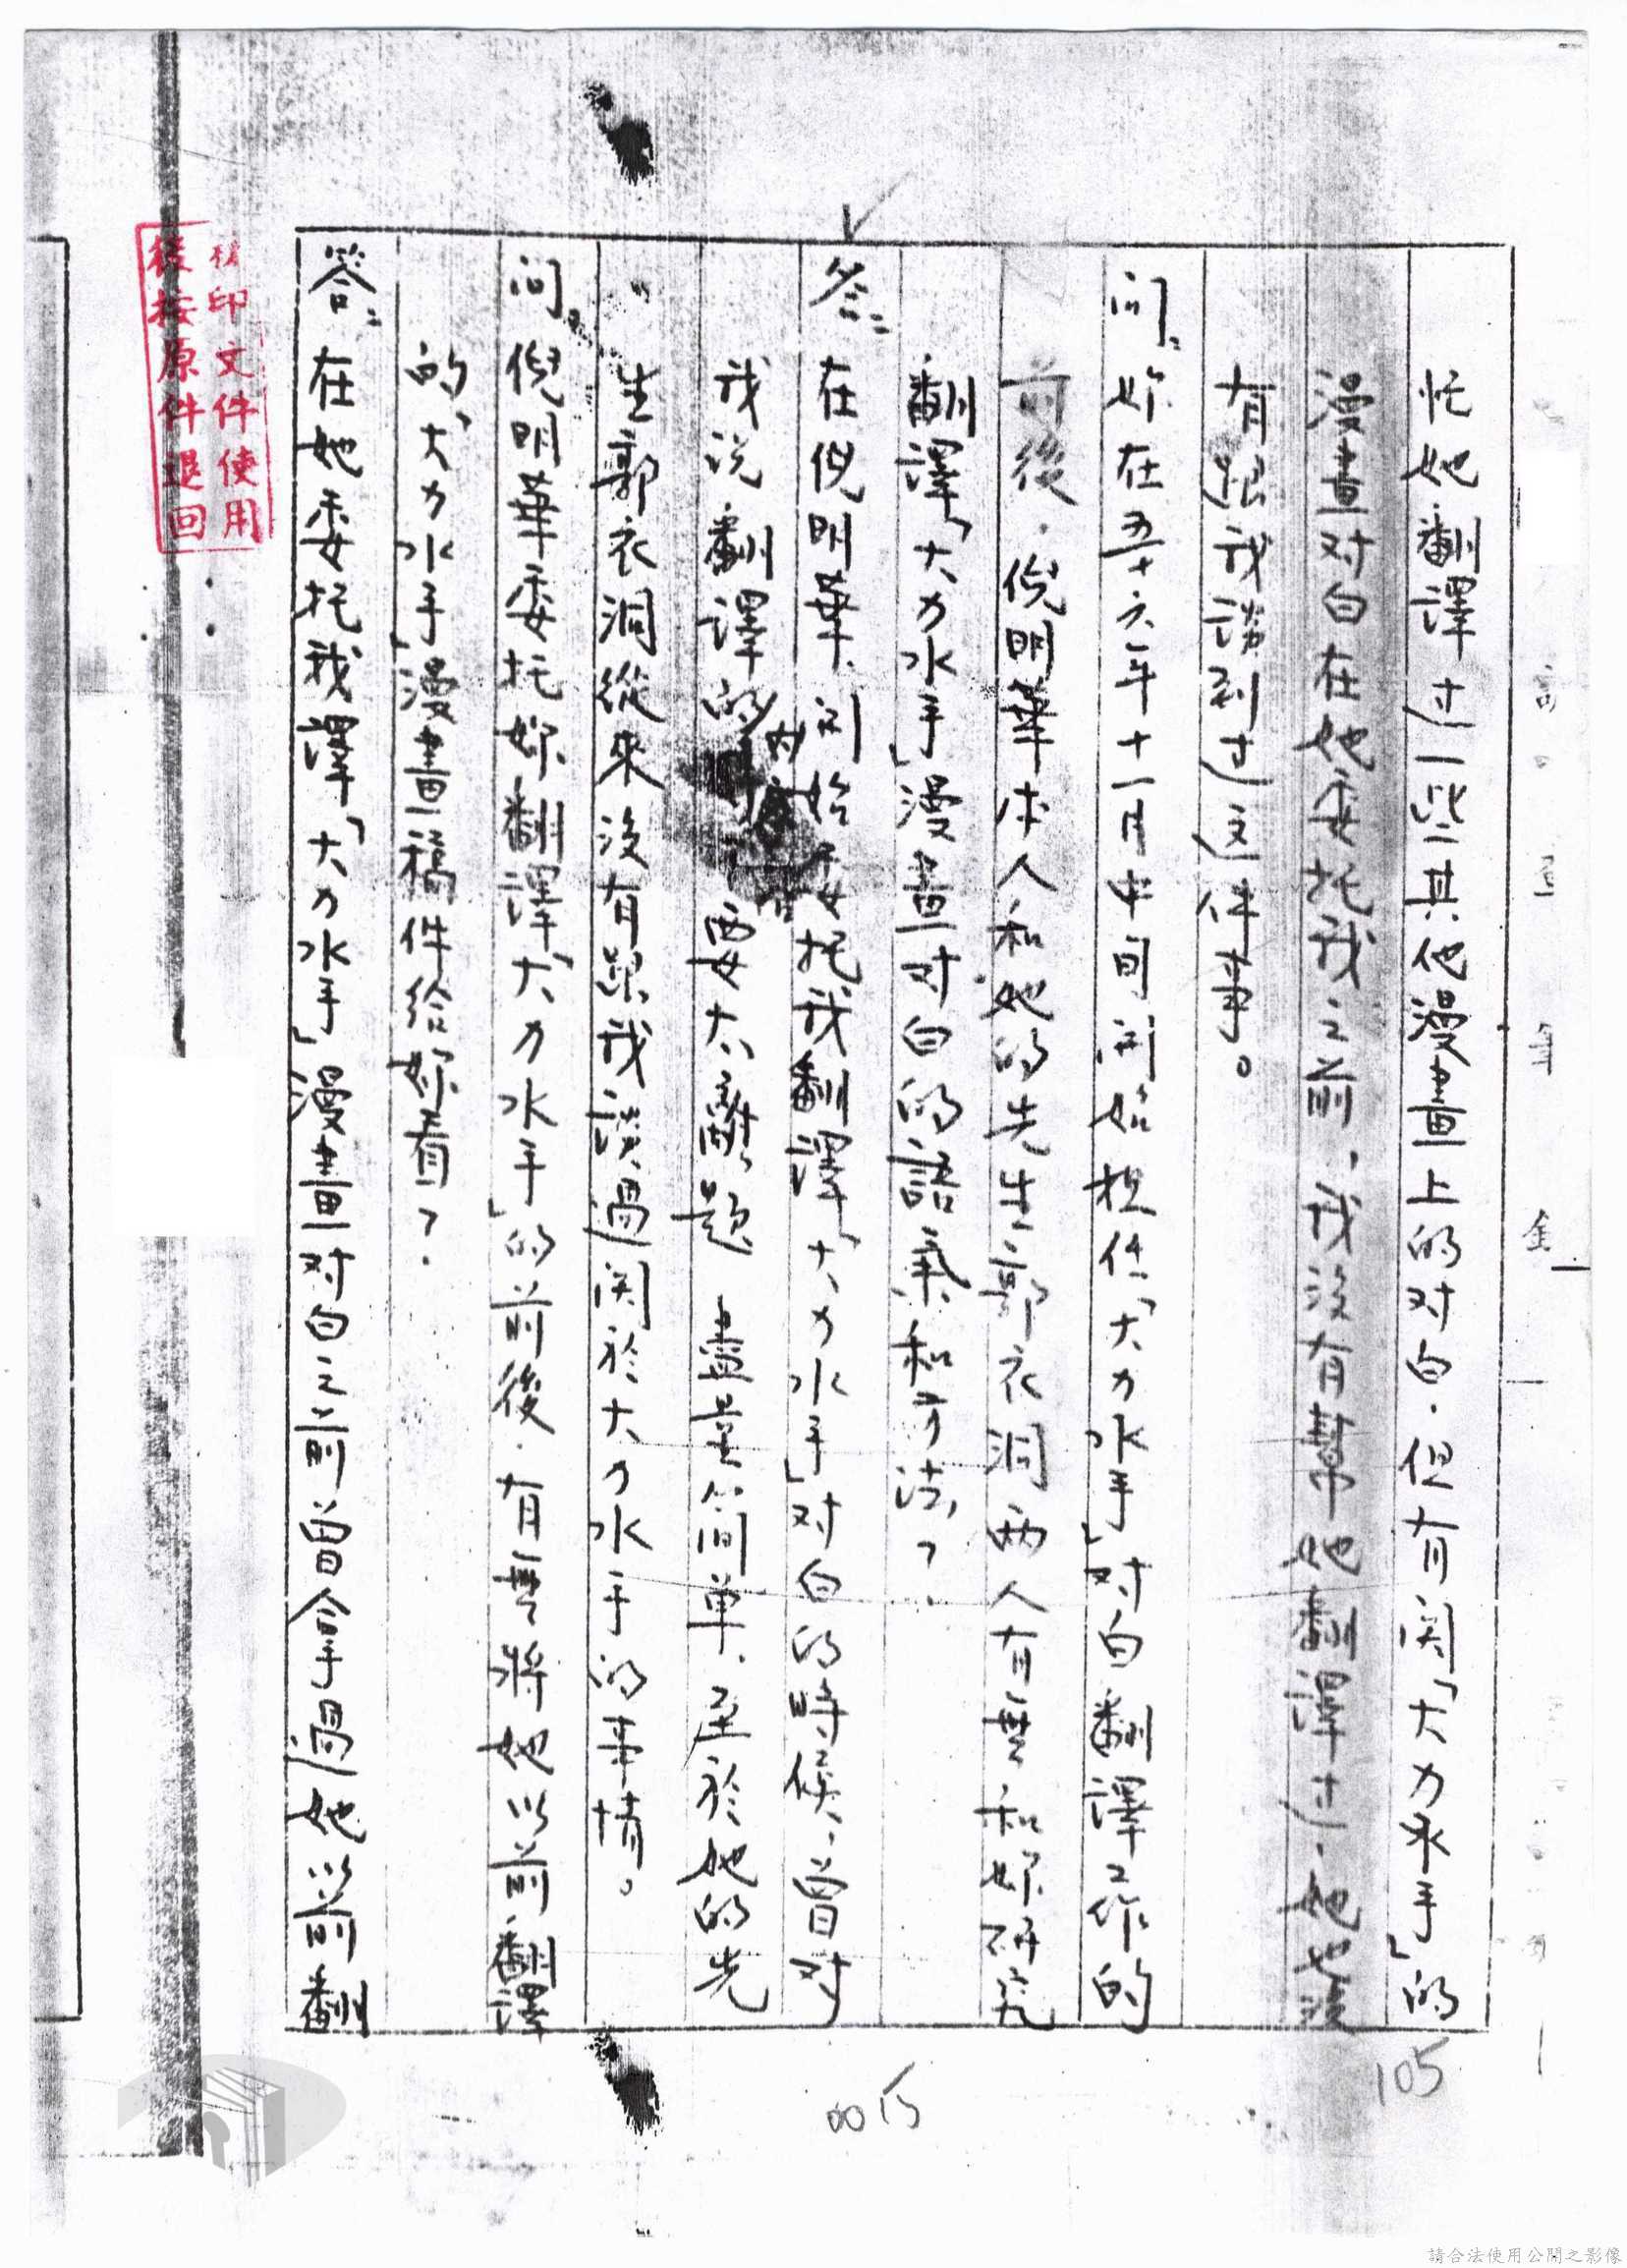 忙她翻譯过一些其他漫畫上的对白．但有関「大力水手」的
漫畫对白在她委托我之前，我沒有幫她翻譯过．她也沒
有跟我談到过这件事。
问：妳在五十六年十一月中旬開始担任「大力水手」对白翻譯工作的
前後．倪明華本人和她的先生郭衣洞两人有無和妳研究
翻譯「大力水手」漫畫对白的語氣和方法？．
答：在倪明華、開始委托我翻譯「大力水手」对白的時候、曾对
我说翻譯的 內容 要大離題 盡量简单、至於她的先
生郭衣洞從來沒有跟我談過関於大力水手的事情。
问：倪明華委托妳翻譯「大力水手」的前後．有無將她以前翻譯
的「大力水手」漫畫稿件給妳看？．
答：在她委托我譯「大力水手」漫畫对白之前曾拿過她以前翻
印文件使用
後按原件退回
105
0015
請合法使用公開之影像